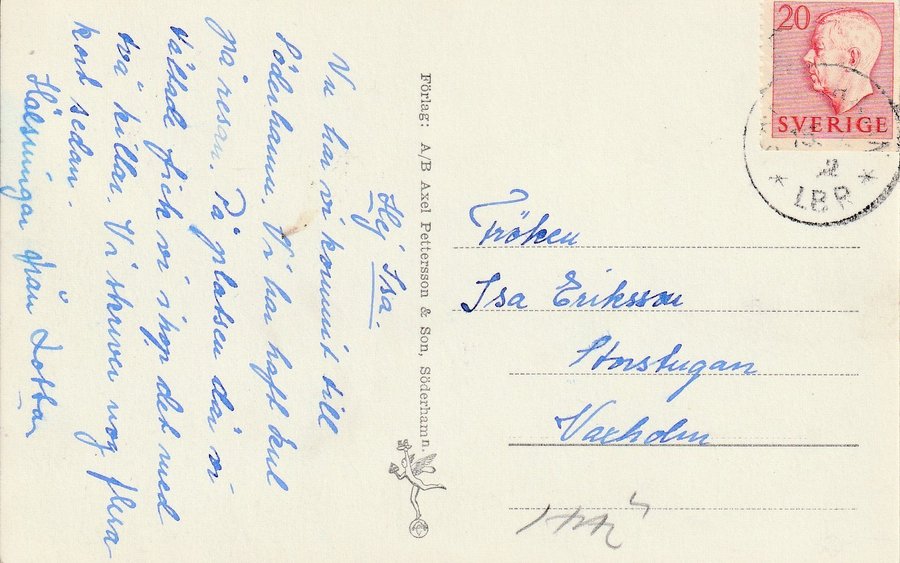 Hej Isa.
Nu har vi kommit till
Söderhamn. Vi har haft kul
på resan. På platsen där vi
tältade fick vi ihop det med
två killar. Vi skriver nog flera
kort sedan.
Hälsningar från Lotta
Förlag: A/B Axel Pettersson & Son, Söderhamn.
20
SVERIGE
LBR
Fröken
Isa Eriksson
Storstugan
Vaxholm